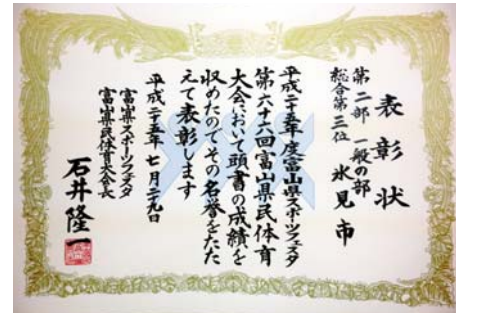 表彰状
第二部 一般の部
総合第三位 氷見市
平成二十五年度富山県スポーツフェスタ
第六十六回富山県民体育
大会において頭書の成績を
収めたのでその名誉をたた
えて表彰します
平成二十五年七月二十九日
富山県スポーツフェスタ
富山県民体育大会会長
石井隆一